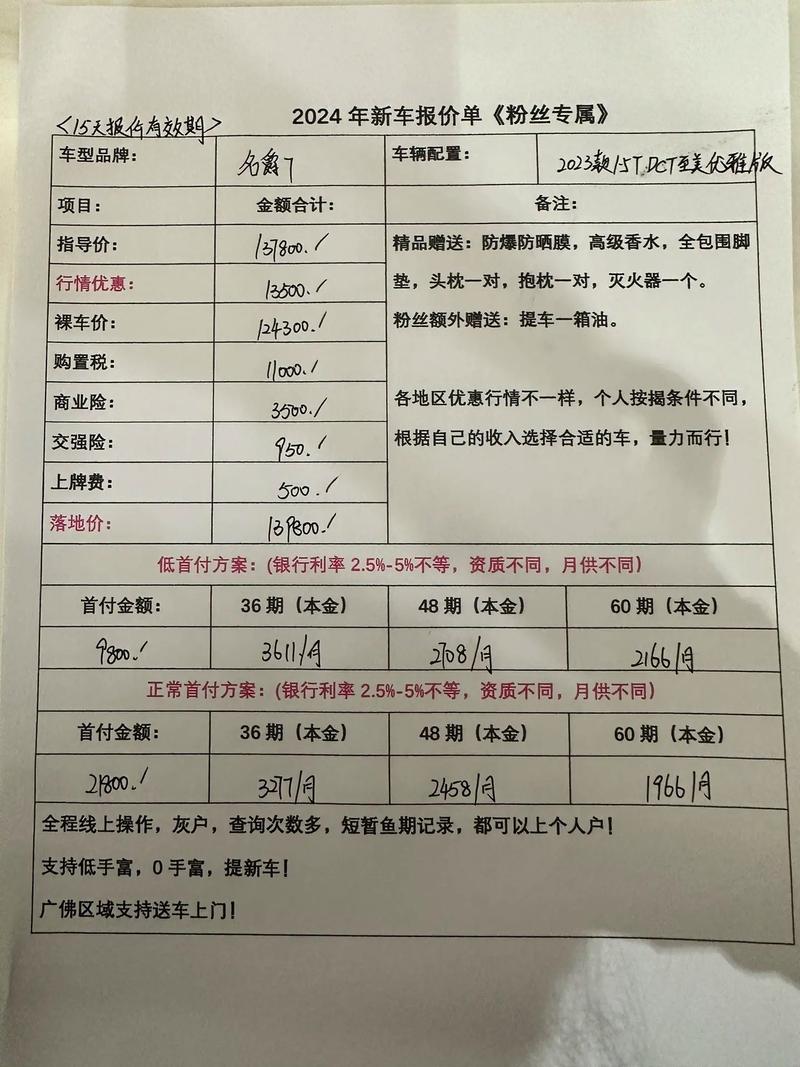 2024年新车报价单《粉丝专属》
<15天报价有效期>
车型品牌： 名爵7 车辆配置： 2023款1.5T DCT至美优雅版
项目： 金额合计： 备注：
指导价： 137800./ 精品赠送：防爆防晒膜，高级香水，全包围脚
行情优惠： 13500./ 垫，头枕一对，抱枕一对，灭火器一个。
裸车价： 124300./ 粉丝额外赠送：提车一箱油。
购置税： 11000./
商业险： 3500./ 各地区优惠行情不一样，个人按揭条件不同，
交强险： 950./ 根据自己的收入选择合适的车，量力而行！
上牌费： 500./
落地价： 139800./
低首付方案：(银行利率 2.5%-5%不等，资质不同，月供不同)
首付金额： 36期（本金） 48期（本金） 60期（本金）
9800./ 3611/月 2708/月 2166/月
正常首付方案：(银行利率 2.5%-5%不等，资质不同，月供不同)
首付金额： 36期（本金） 48期（本金） 60期（本金）
21800./ 3277/月 2458/月 1966/月
全程线上操作，灰户，查询次数多，短暂鱼期记录，都可以上个人户！
支持低手富，0手富，提新车！
广佛区域支持送车上门！